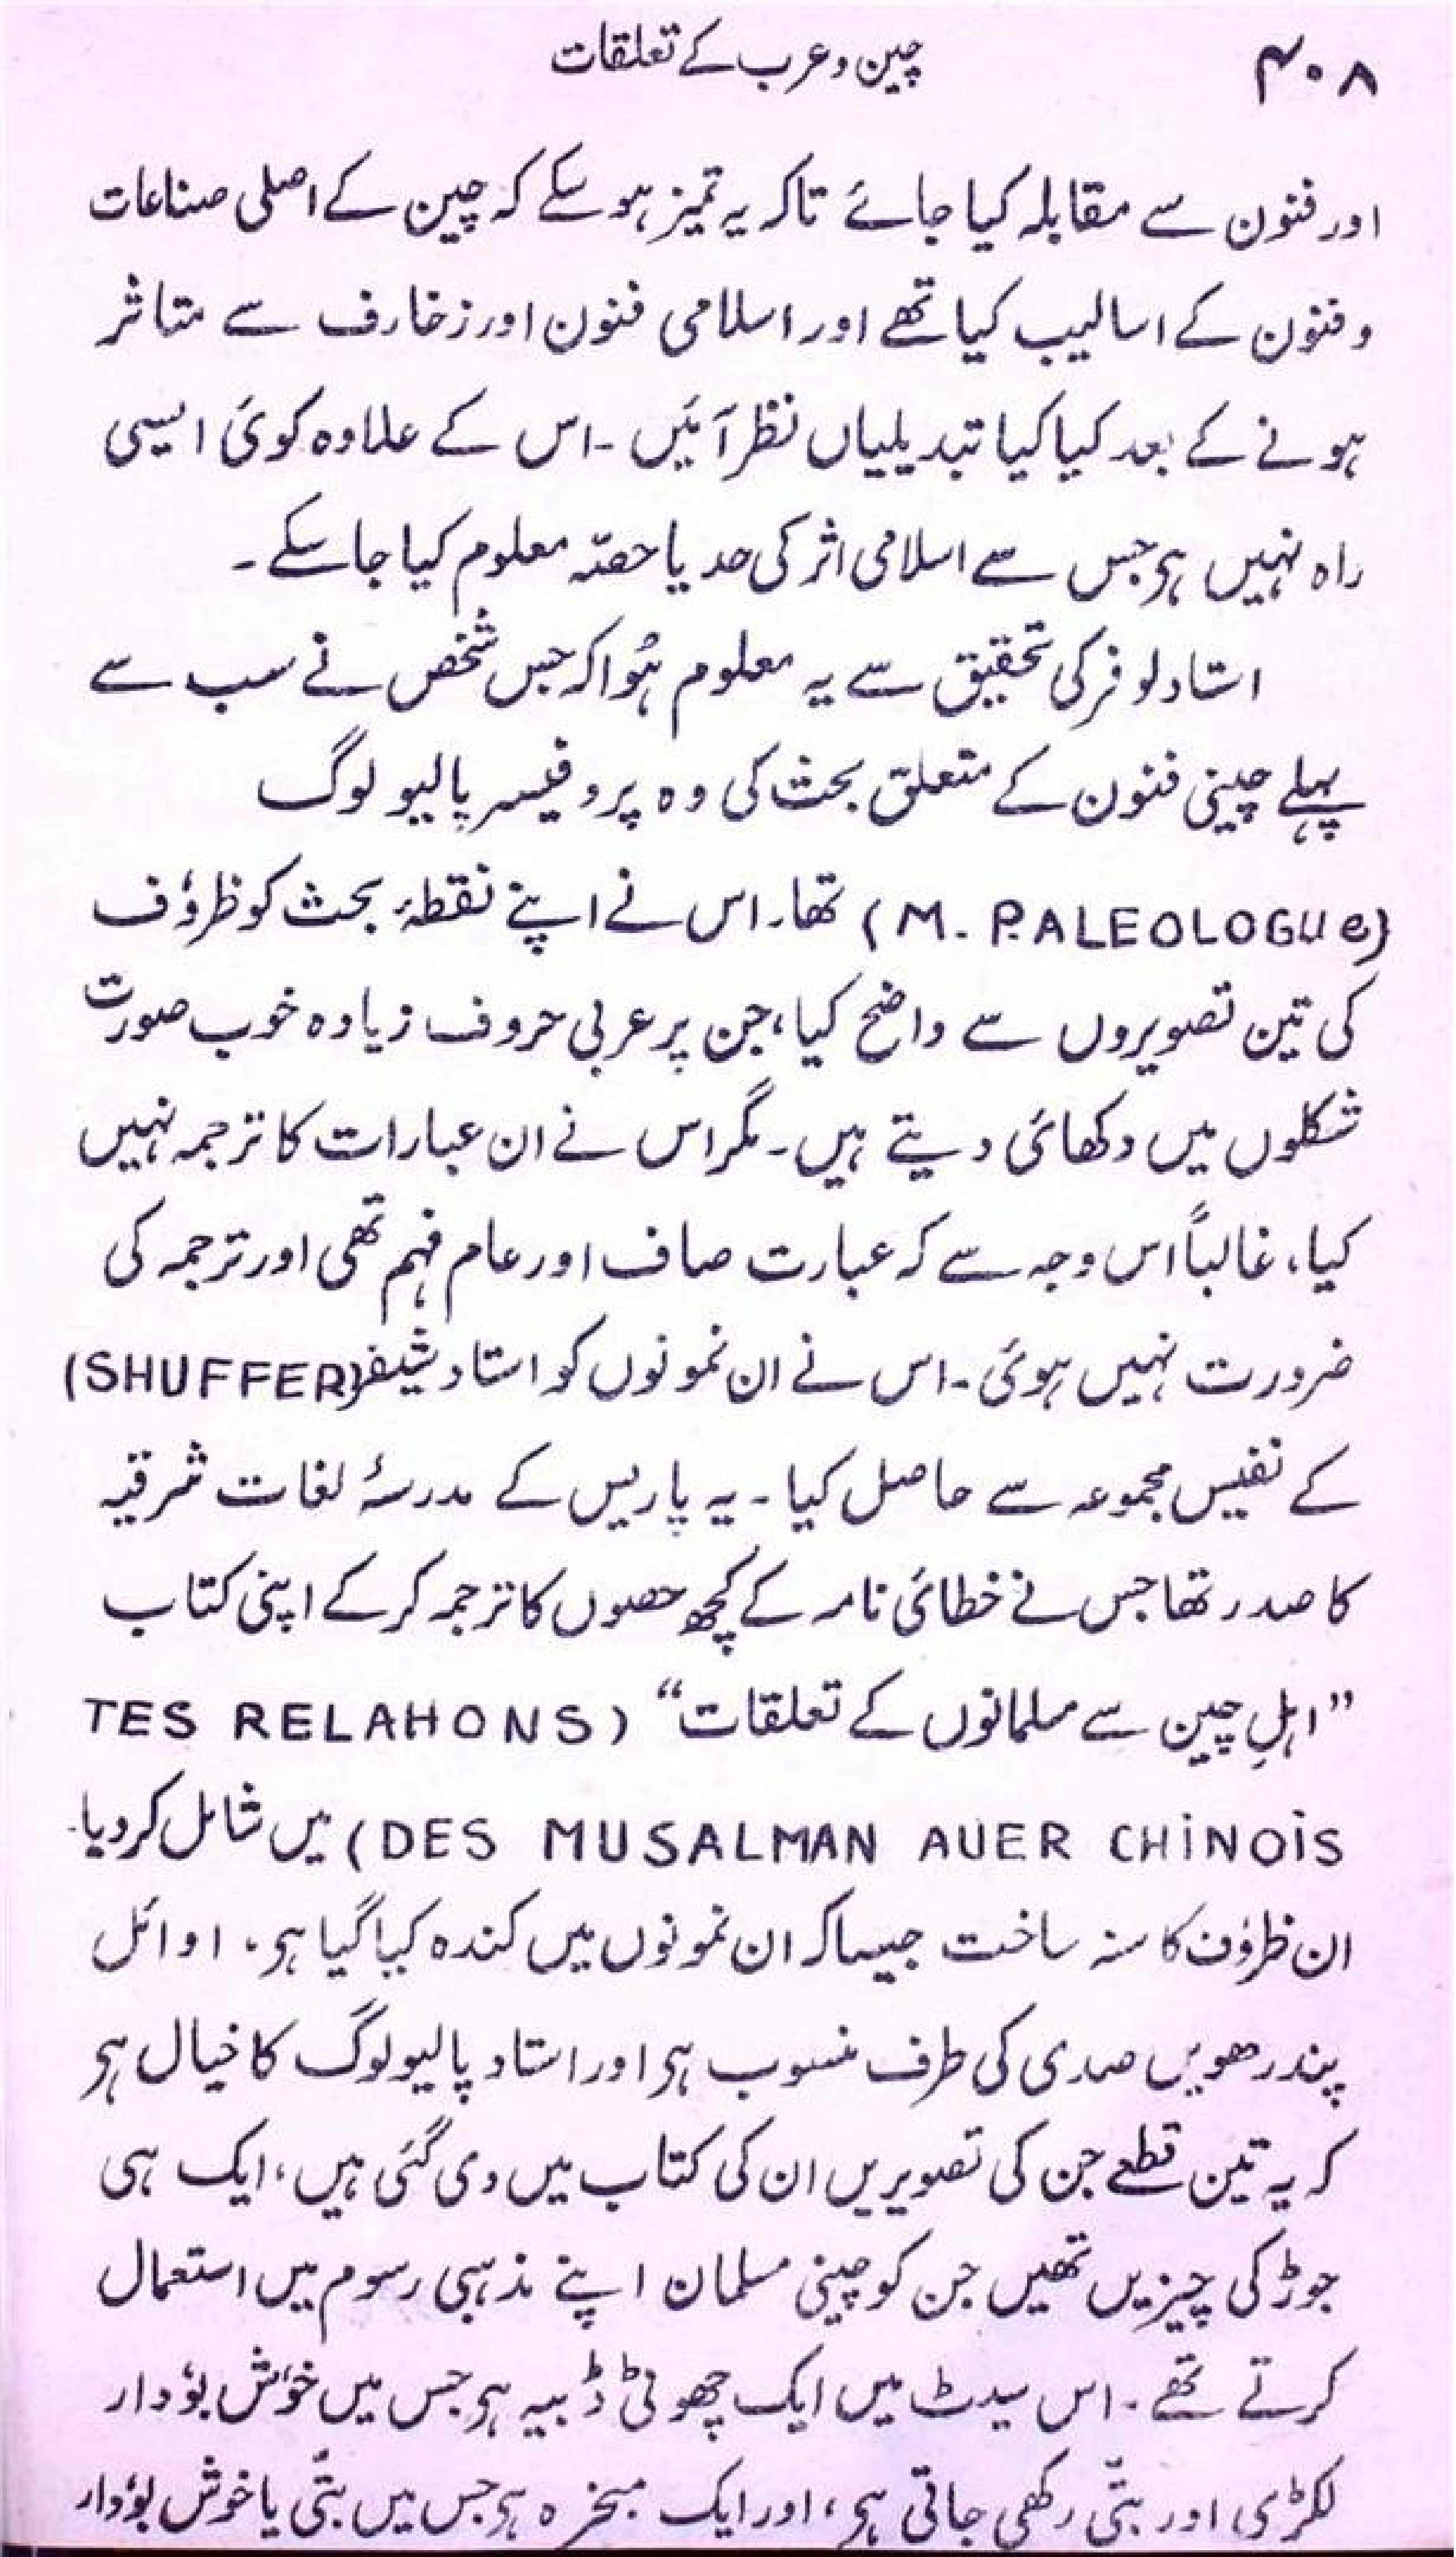 ۴۰۸ چین و عرب کے تعلقات
اور فنون سے مقابلہ کیا جائے تاکہ یہ تمیز ہوسکے کہ چین کے اصلی صناعات
و فنون کے اسالیب کیا تھے اور اسلامی فنون اور زخارف سے متاثر
ہونے کے بعد کیا کیا تبدیلیاں نظر آئیں ۔ اس کے علاوہ کوئی ایسی
راہ نہیں ہی جس سے اسلامی اثر کی حد یا حصّہ معلوم کیا جاسکے ۔
استاد لوفر کی تحقیق سے یہ معلوم ہُوا کہ جس شخص نے سب سے
پہلے چینی فنون کے متعلق بحث کی وہ پروفیسر پالیو لوگ
(M. P.ALEOLOGUe) تھا۔ اس نے اپنے نقطۂ بحث کو ظروٗف
کی تین تصویروں سے واضح کیا، جن پر عربی حروف زیادہ خوب صورت
شکلوں میں دکھائی دیتے ہیں ۔ مگر اس نے ان عبارات کا ترجمہ نہیں
کیا، غالباً اس وجہ سے کہ عبارت صاف اور عام فہم تھی اور ترجمہ کی
ضرورت نہیں ہوئی ۔ اس نے ان نمونوں کو استاد شیفر (SHUFFER)
کے نفیس مجموعہ سے حاصل کیا ۔ یہ پاریس کے مدرسۂ لغات شرقیہ
کا صدر تھا جس نے خطائی نامہ کے کچھ حصوں کا ترجمہ کرکے اپنی کتاب
”اہلِ چین سے مسلمانوں کے تعلقات“ (TES RELAHONS
DES MUSALMAN AUER CHiNOiS) میں شامل کردیا۔
ان ظروٗف کا سنہ ساخت جیسا کہ ان نمونوں میں کندہ کیا گیا ہی ۔ اوائل
پندرھویں صدی کی طرف منسوب ہی اور استاد پالیولوگ کا خیال ہی
کہ یہ تین قطعے جن کی تصویریں ان کی کتاب میں دی گئی ہیں، ایک ہی
جوڑ کی چیزیں تھیں جن کو چینی مسلمان اپنے مذہبی رسوم میں استعمال
کرتے تھے ۔ اس سیٹ میں ایک چھوٹی ڈبیہ ہی جس میں خوٗش بوٗدار
لکڑی اور بتّی رکھی جاتی ہی، اور ایک مبخرہ ہی جس میں بتّی یا خوٗش بوٗدار